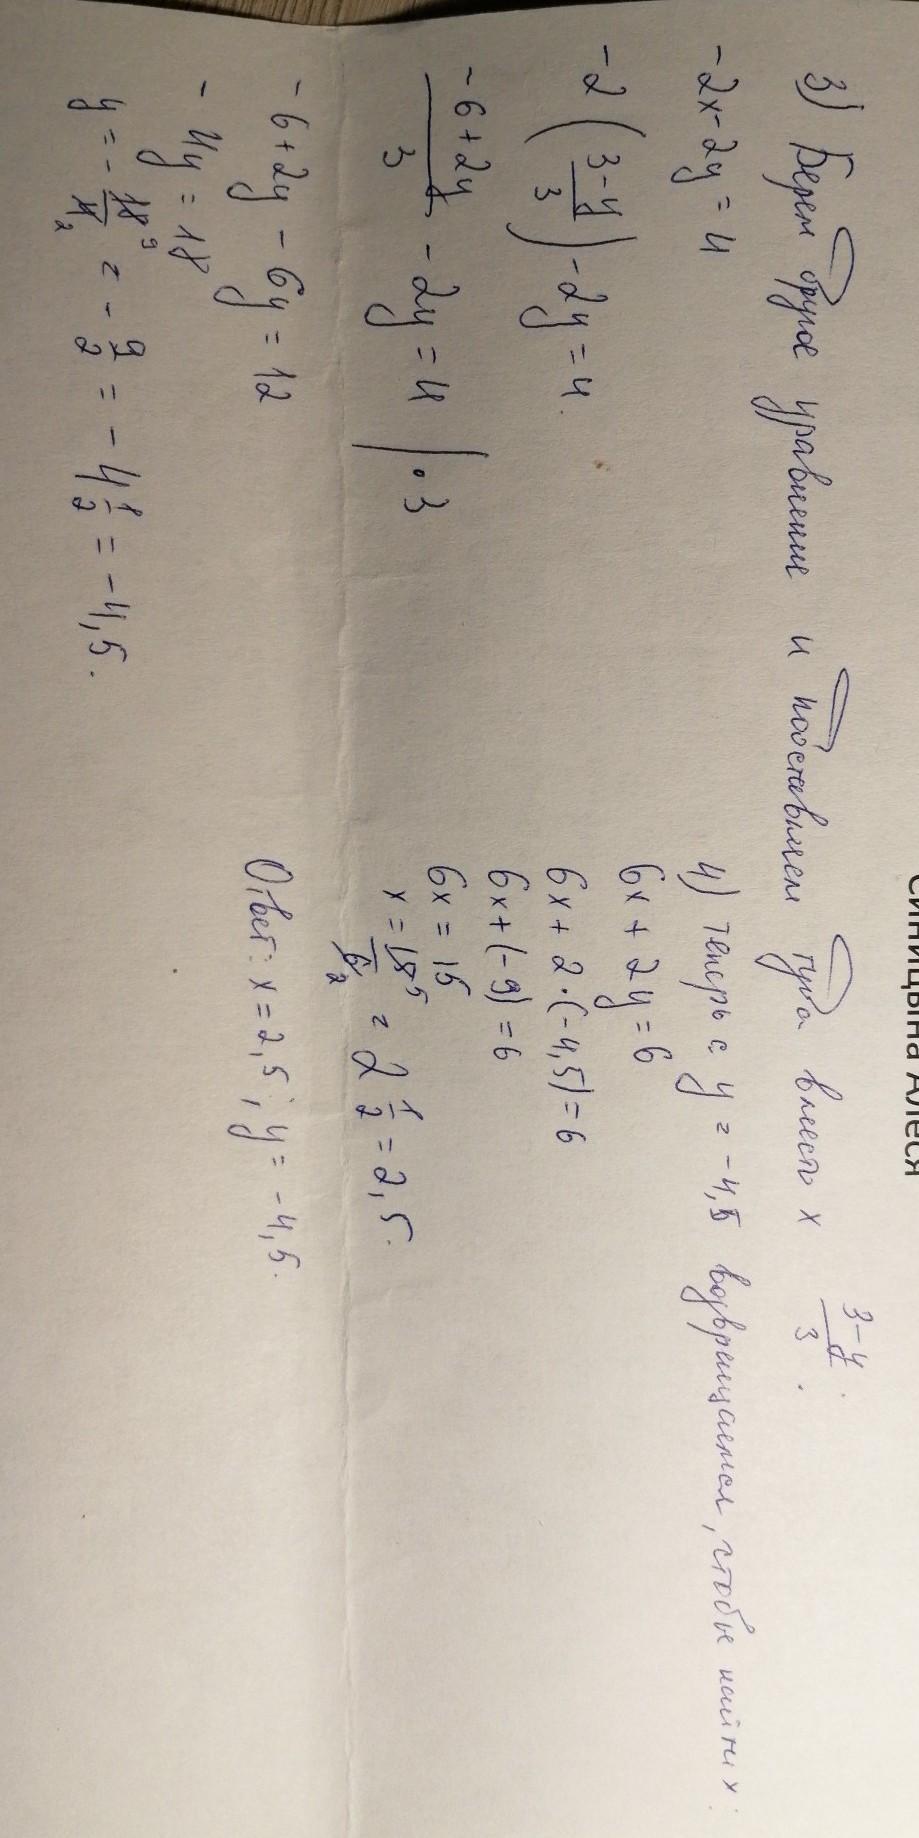 Синицына Алеся
3) Берем другое уравнение и подставляем туда вместо x (3-y)/3.
-2x-2y=4
-2((3-y)/3)-2y=4.
(-6+2y)/3 - 2y = 4 | •3
-6+2y-6y=12
-4y=18
y=-18/4 9 2 = -9/2 = -4 1/2 = -4,5.
4) теперь с y = -4,5 возвращаемся, чтобы найти x:
6x+2y=6
6x+2·(-4,5)=6
6x+(-9)=6
6x=15
x=15/6 5 2 = 2 1/2 = 2,5.
Ответ: x=2,5; y=-4,5.